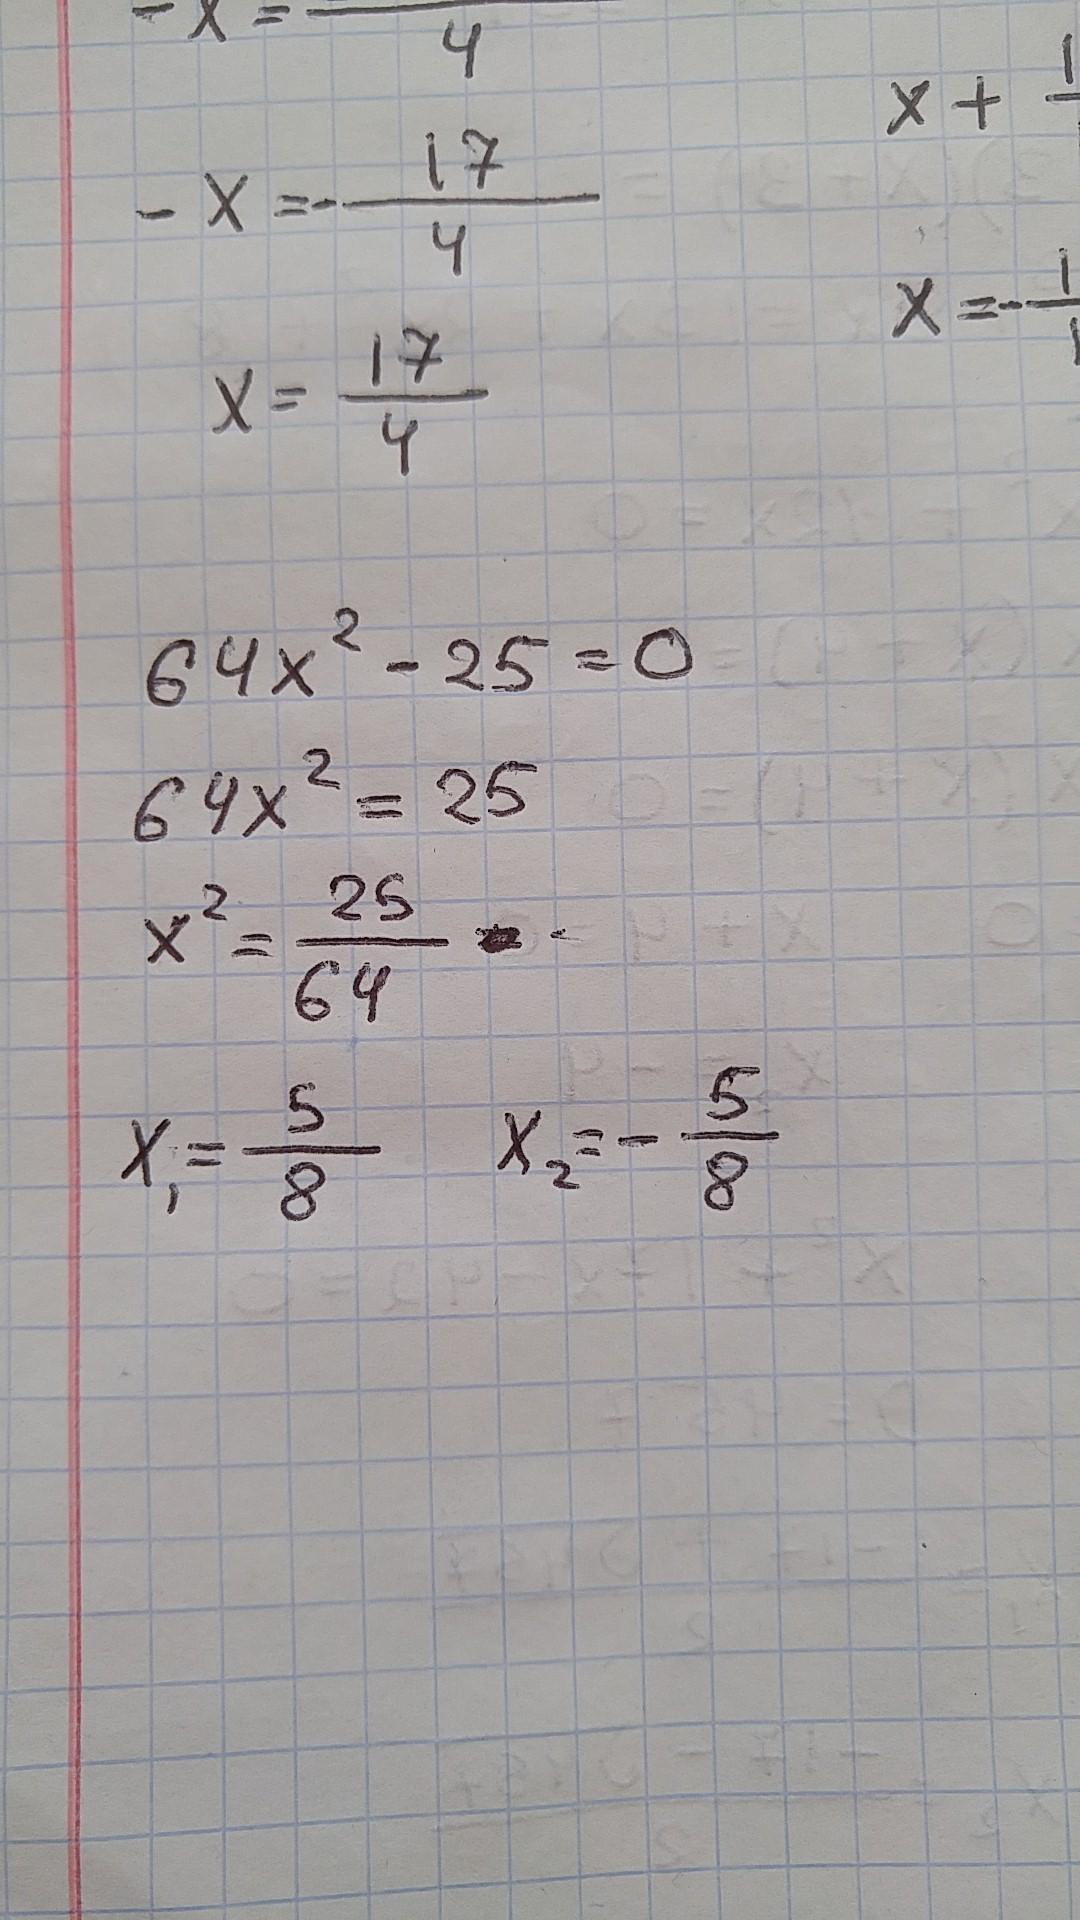 -x = ——/4
x + 1
-x = - 17/4
x = - 1
x = 17/4
64x² - 25 = 0
64x² = 25
x² = 25/64
x₁ = 5/8   x₂ = - 5/8